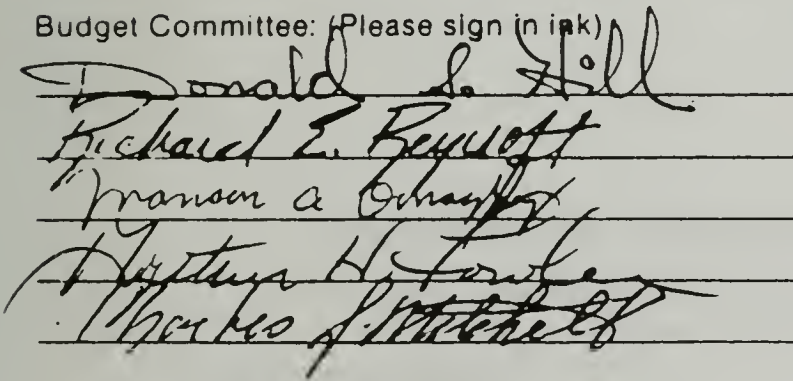 Budget Committee: (Please sign in ink)
Donald S. Hill
Richard E.
a
Arthur H. Fowler
Charles S. Mitchell